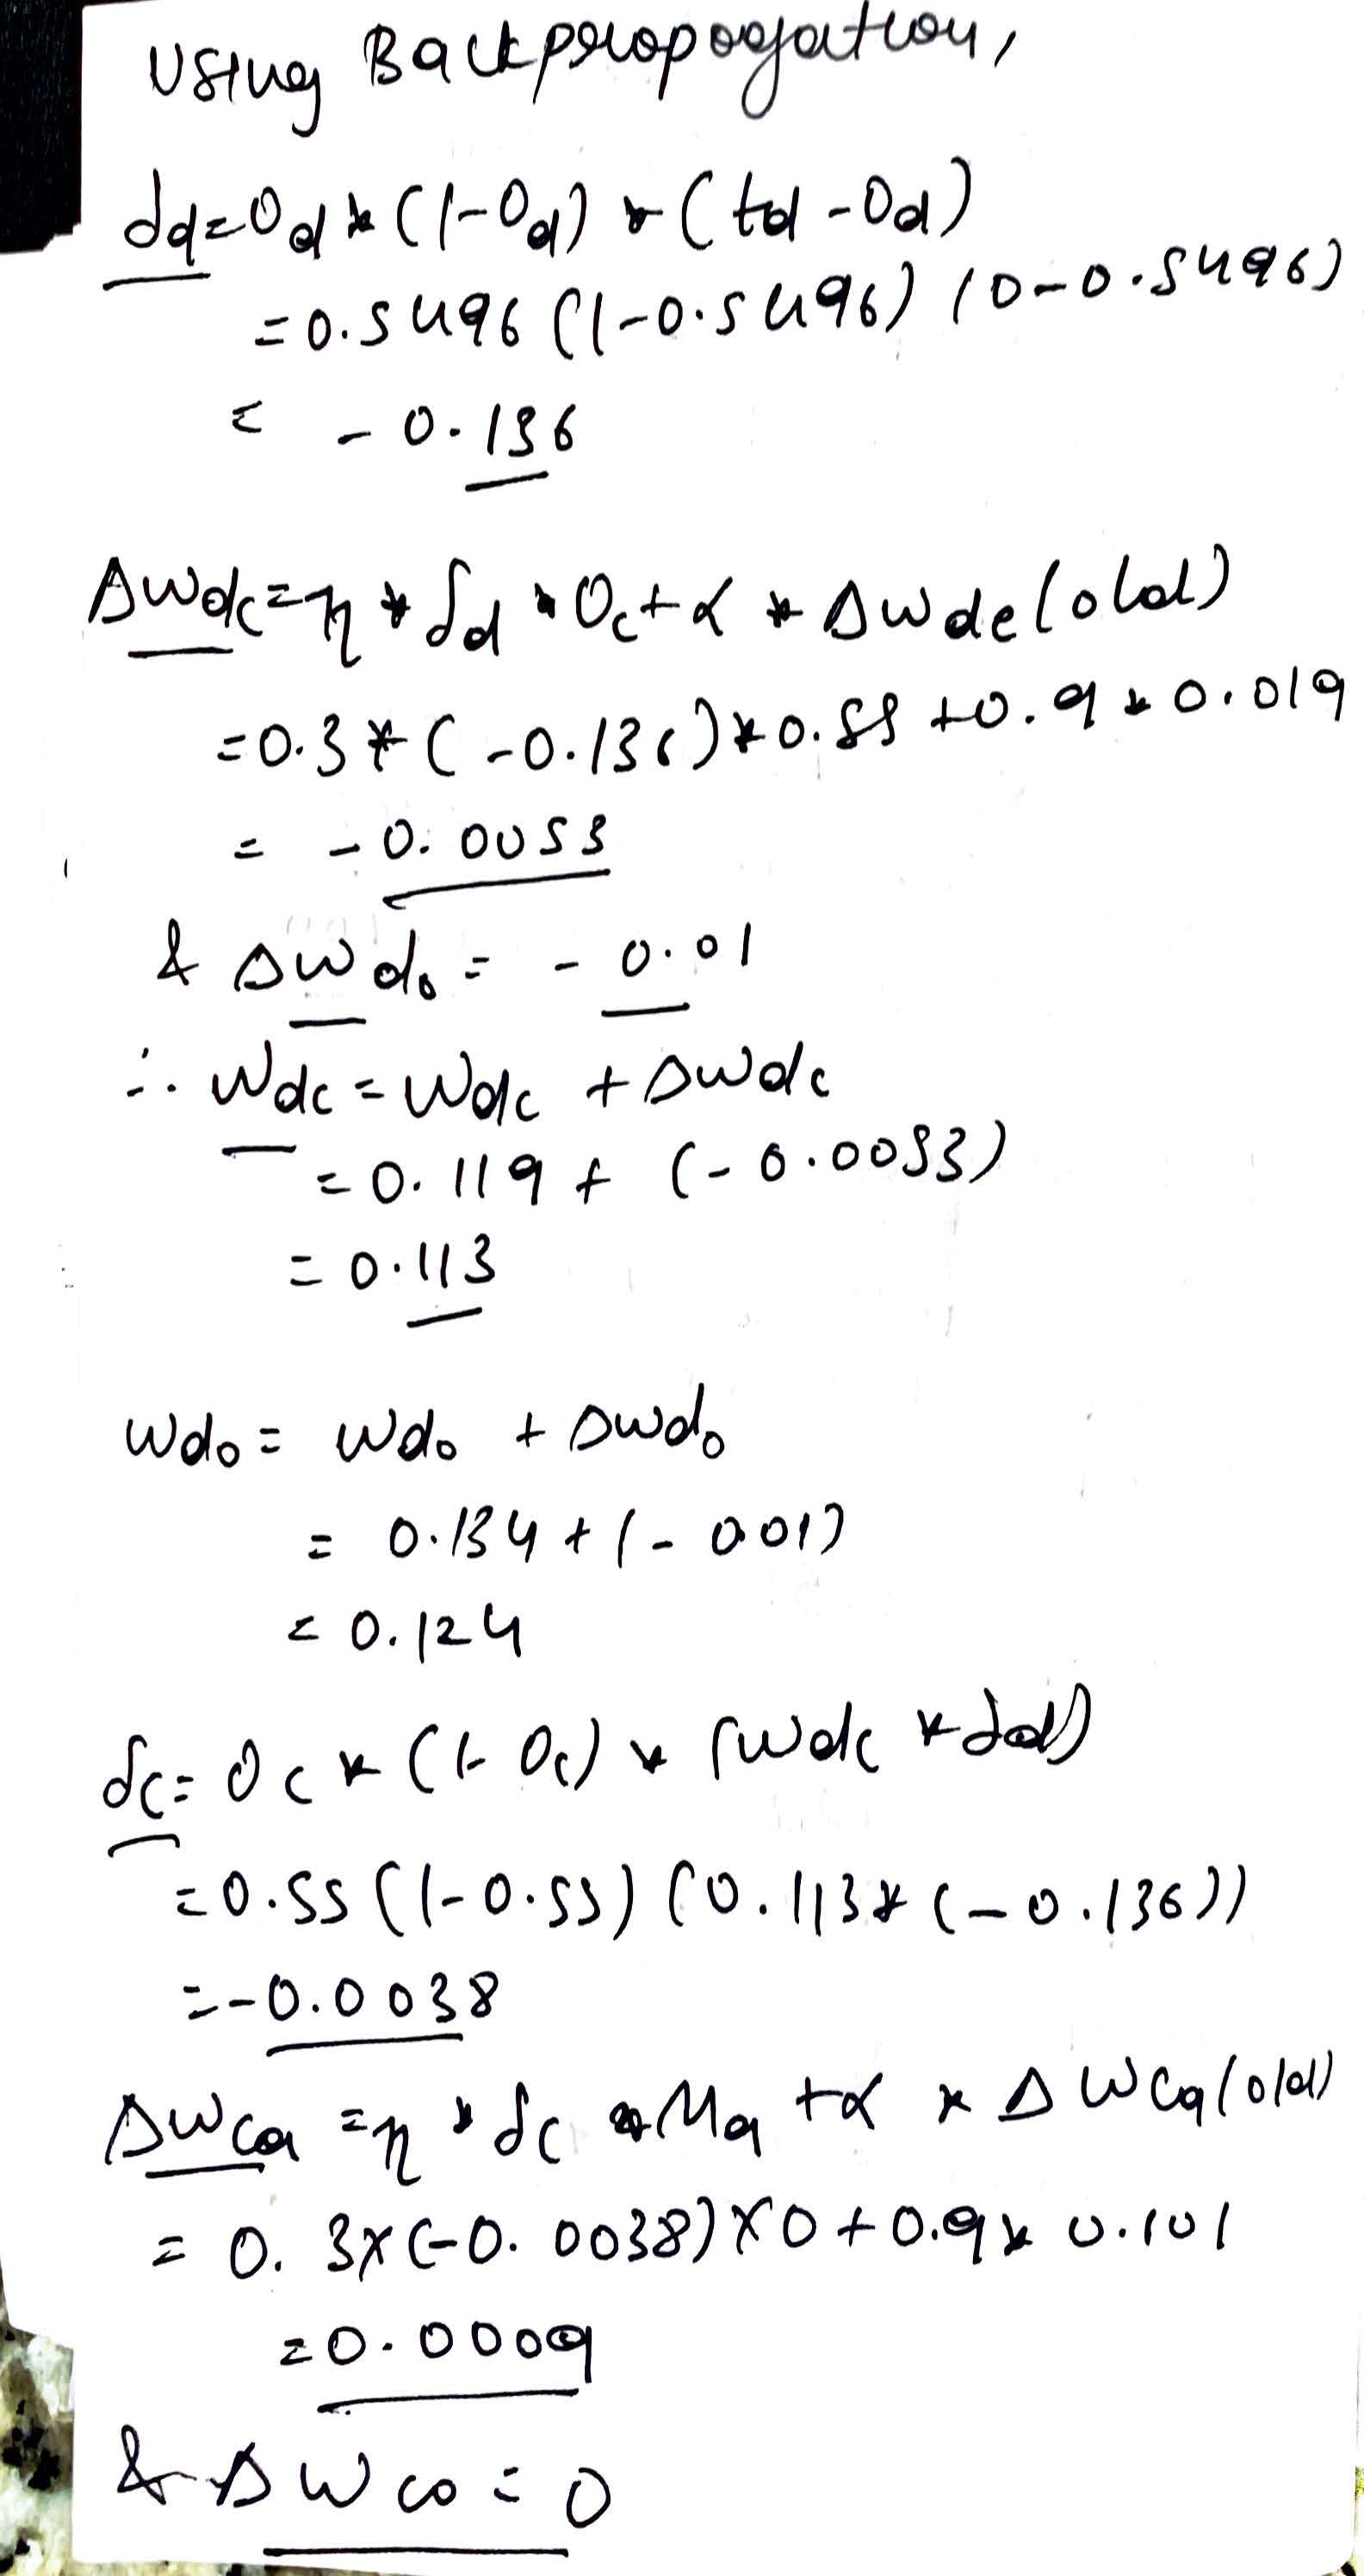 Using Backpropogation,
δd=Od*(1-Od)*(td-Od)
=0.5496(1-0.5496)(0-0.5496)
= -0.136
ΔWdc=η*δd*Oc+α*ΔWdc(old)
=0.3*(-0.136)*0.55+0.9*0.019
= -0.0053
& ΔWdo= -0.01
∴ Wdc=Wdc+ΔWdc
=0.119+(-0.0053)
=0.113
Wdo= Wdo+ΔWdo
= 0.134+(-0.01)
= 0.124
δc=Oc*(1-Oc)*(Wdc*δd)
=0.55(1-0.55)(0.113*(-0.136))
=-0.0038
ΔWca=η*δc*Ma+α*ΔWca(old)
= 0.3×(-0.0038)×0+0.9*0.101
=0.0009
& ΔWco=0